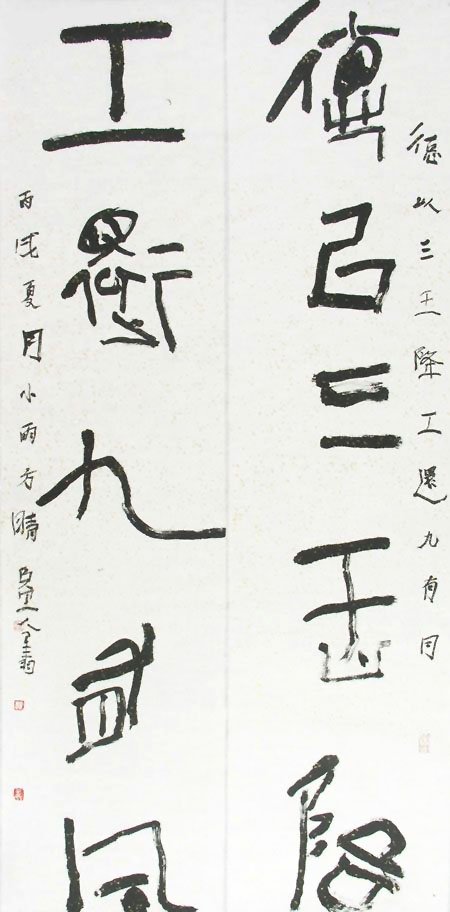 德以三王降工還九有同
德㠯三王降
工還九有同
丙戌夏月小雨方晴